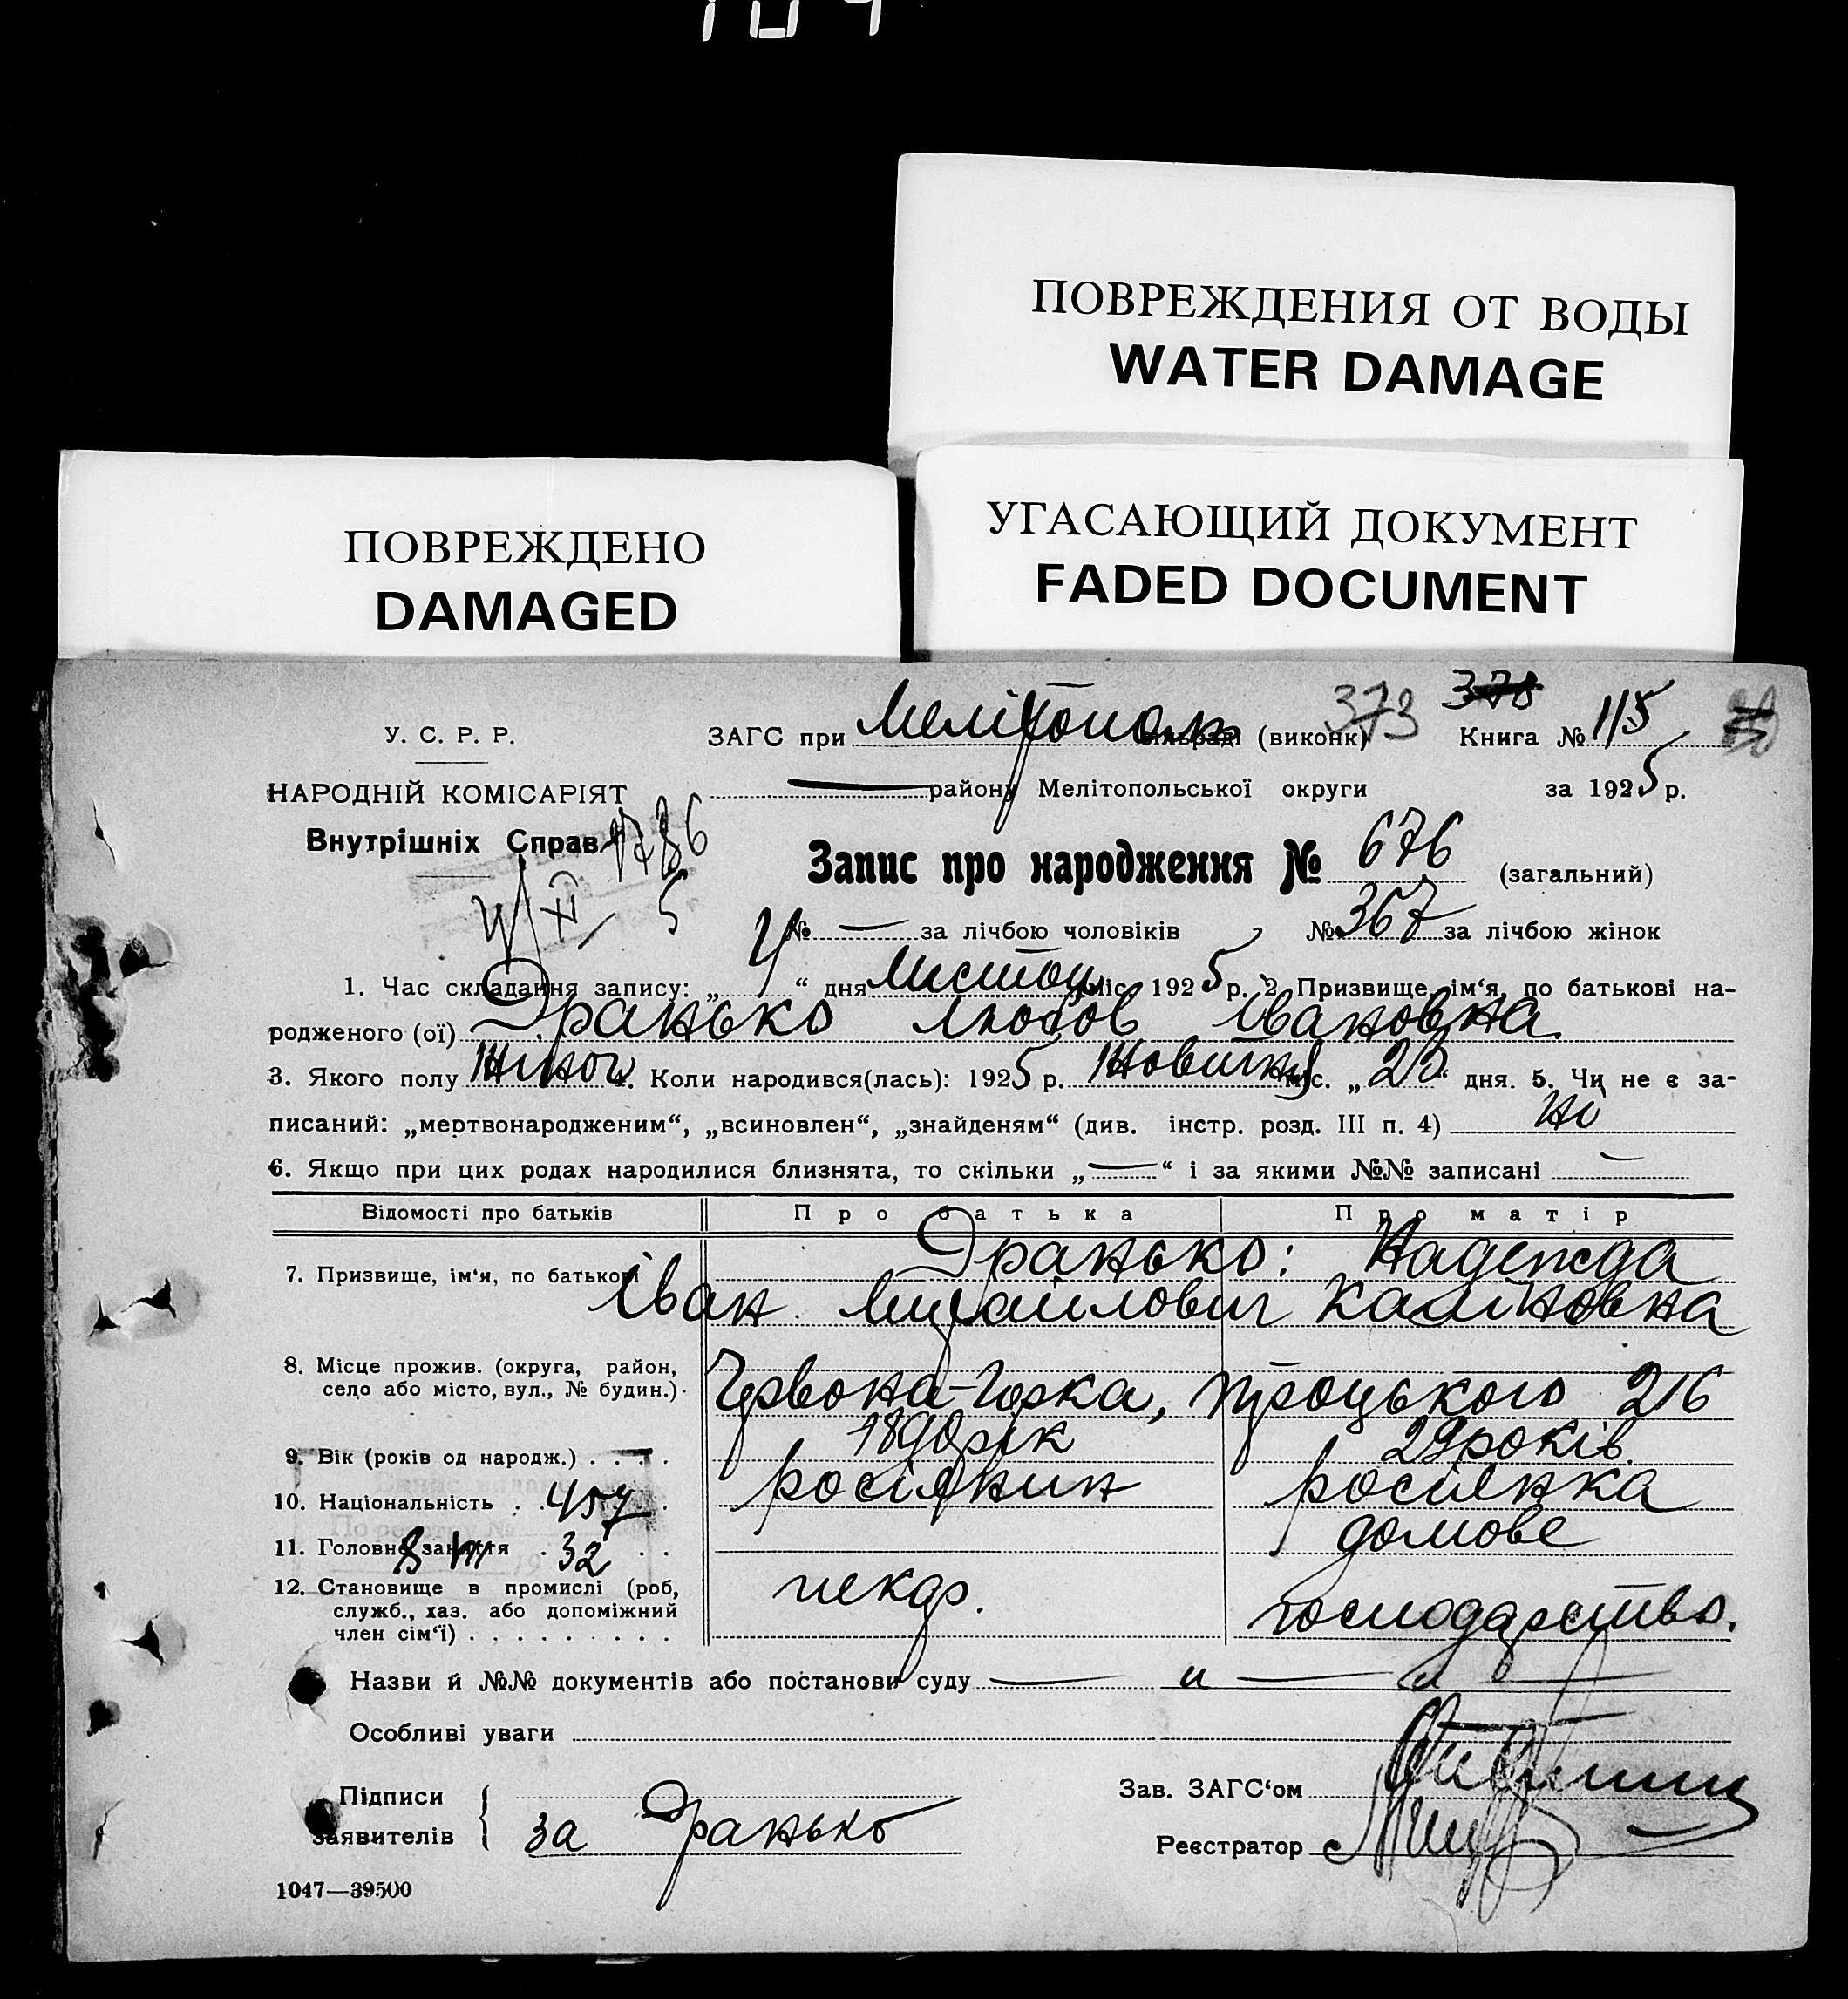 ПОВРЕЖДЕНИЯ ОТ ВОДЫ
WATER DAMAGE
ПОВРЕЖДЕНО
DAMAGED
УГАСАЮЩИЙ ДОКУМЕНТ
FADED DOCUMENT
У. С. Р. Р.
НАРОДНІЙ КОМІСАРІЯТ
Внутрішніх Справ
1786
4/XI 5
ЗАГС при Мелітополь (виконк) 373 378 Книга № 115
— району Мелітопольської округи за 1925 р.
Запис про народження № 676 (загальний)
№ — за лічбою чоловіків № 367 за лічбою жінок
1. Час складання запису: „ 4 “ дня Листоп міс. 1925 р. 2. Призвище, ім‘я, по батькові на-
родженого (ої) Дранько Любов Івановна
3. Якого полу жіноч 4. Коли народився(лась): 1925 р. Жовтня міс. „ 25 “ дня. 5. Чи не є за-
писаний: „мертвонародженим“, „всиновлен“, „знайденям“ (див. інстр. розд. III п. 4) ні
6. Якщо при цих родах народилися близнята, то скільки „ — “ і за якими №№ записані —
Відомості про батьків Про батька Про матір
7. Призвище, ім‘я, по батькові Дранько: Надежда
Іван Михайлович Калиновна
8. Місце прожив. (округа, район,
село або місто, вул., № будин.) Червона-Горка, Троцького 216
9. Вік (років од народж.) . . . . 1890 рік 29 років.
10. Національність . . 457 росіянин росіянка
11. Головне заняття . 32 . . домове
12. Становище в промислі (роб,
служб., хаз. або допоміжний
член сім‘ї) . . . . . . . . . пекар. господарство.
Назви й №№ документів або постанови суду — „ — „ —
Особливі уваги
Підписи
заявителів за Дранько
Зав. ЗАГС‘ом
Реєстратор
1047—39500